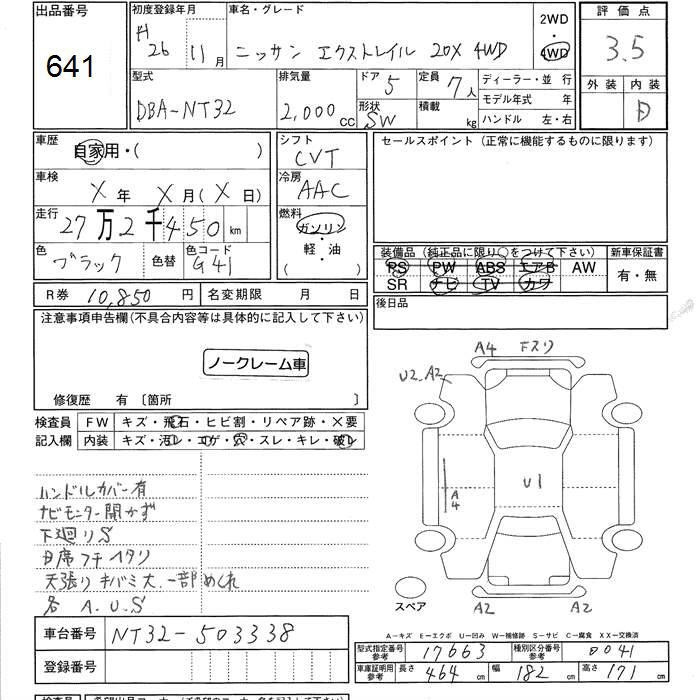 出品番号
641
初度登録年月
H 26 年 11 月
車名・グレード
ニッサン エクストレイル 20X 4WD
2WD
4WD
評価点
3.5
外装 内装
D
型式
DBA-NT32
排気量
2,000 cc
ドア 5
形状 SW
定員 7 人
積載 kg
ディーラー・並行
モデル年式 年
ハンドル 左・右
車歴
自家用・( )
車検
X 年 X 月 ( X 日)
走行
27万2千450 km
色
ブラック
色替
色コード
G41
シフト
CVT
冷房
AAC
燃料
ガソリン
・
軽・油
( )
セールスポイント (正常に機能するものに限ります)
装備品 (純正品に限り○をつけて下さい)
PS PW ABS エアB AW
SR ナビ TV カワ
新車保証書
有・無
後日品
R券 10,850 円
名変期限 月 日
注意事項申告欄(不具合内容等は具体的に記入して下さい)
ノークレーム車
修復歴 有 〔箇所 〕
検査員
記入欄
FW キズ・飛石・ヒビ割・リペア跡・X要
内装 キズ・汚レ・コゲ・穴・スレ・キレ・破レ
ハンドルカバー有
ナビモニター開かず
下廻りS
D席フチヘタリ
天張りキバミ大、一部めくれ
各 A.U.S
A4 Fスリ
U2.A2
A4
U1
A2 A2
スペア
A－キズ E－エクボ U－凹み W－補修跡 S－サビ C－腐食 XX－交換済
車台番号 NT32-503338
登録番号
型式指定番号 参考 17663
種別区分番号 参考 0041
車庫証明用 参考 長さ 464 cm 幅 182 cm 高さ 171 cm